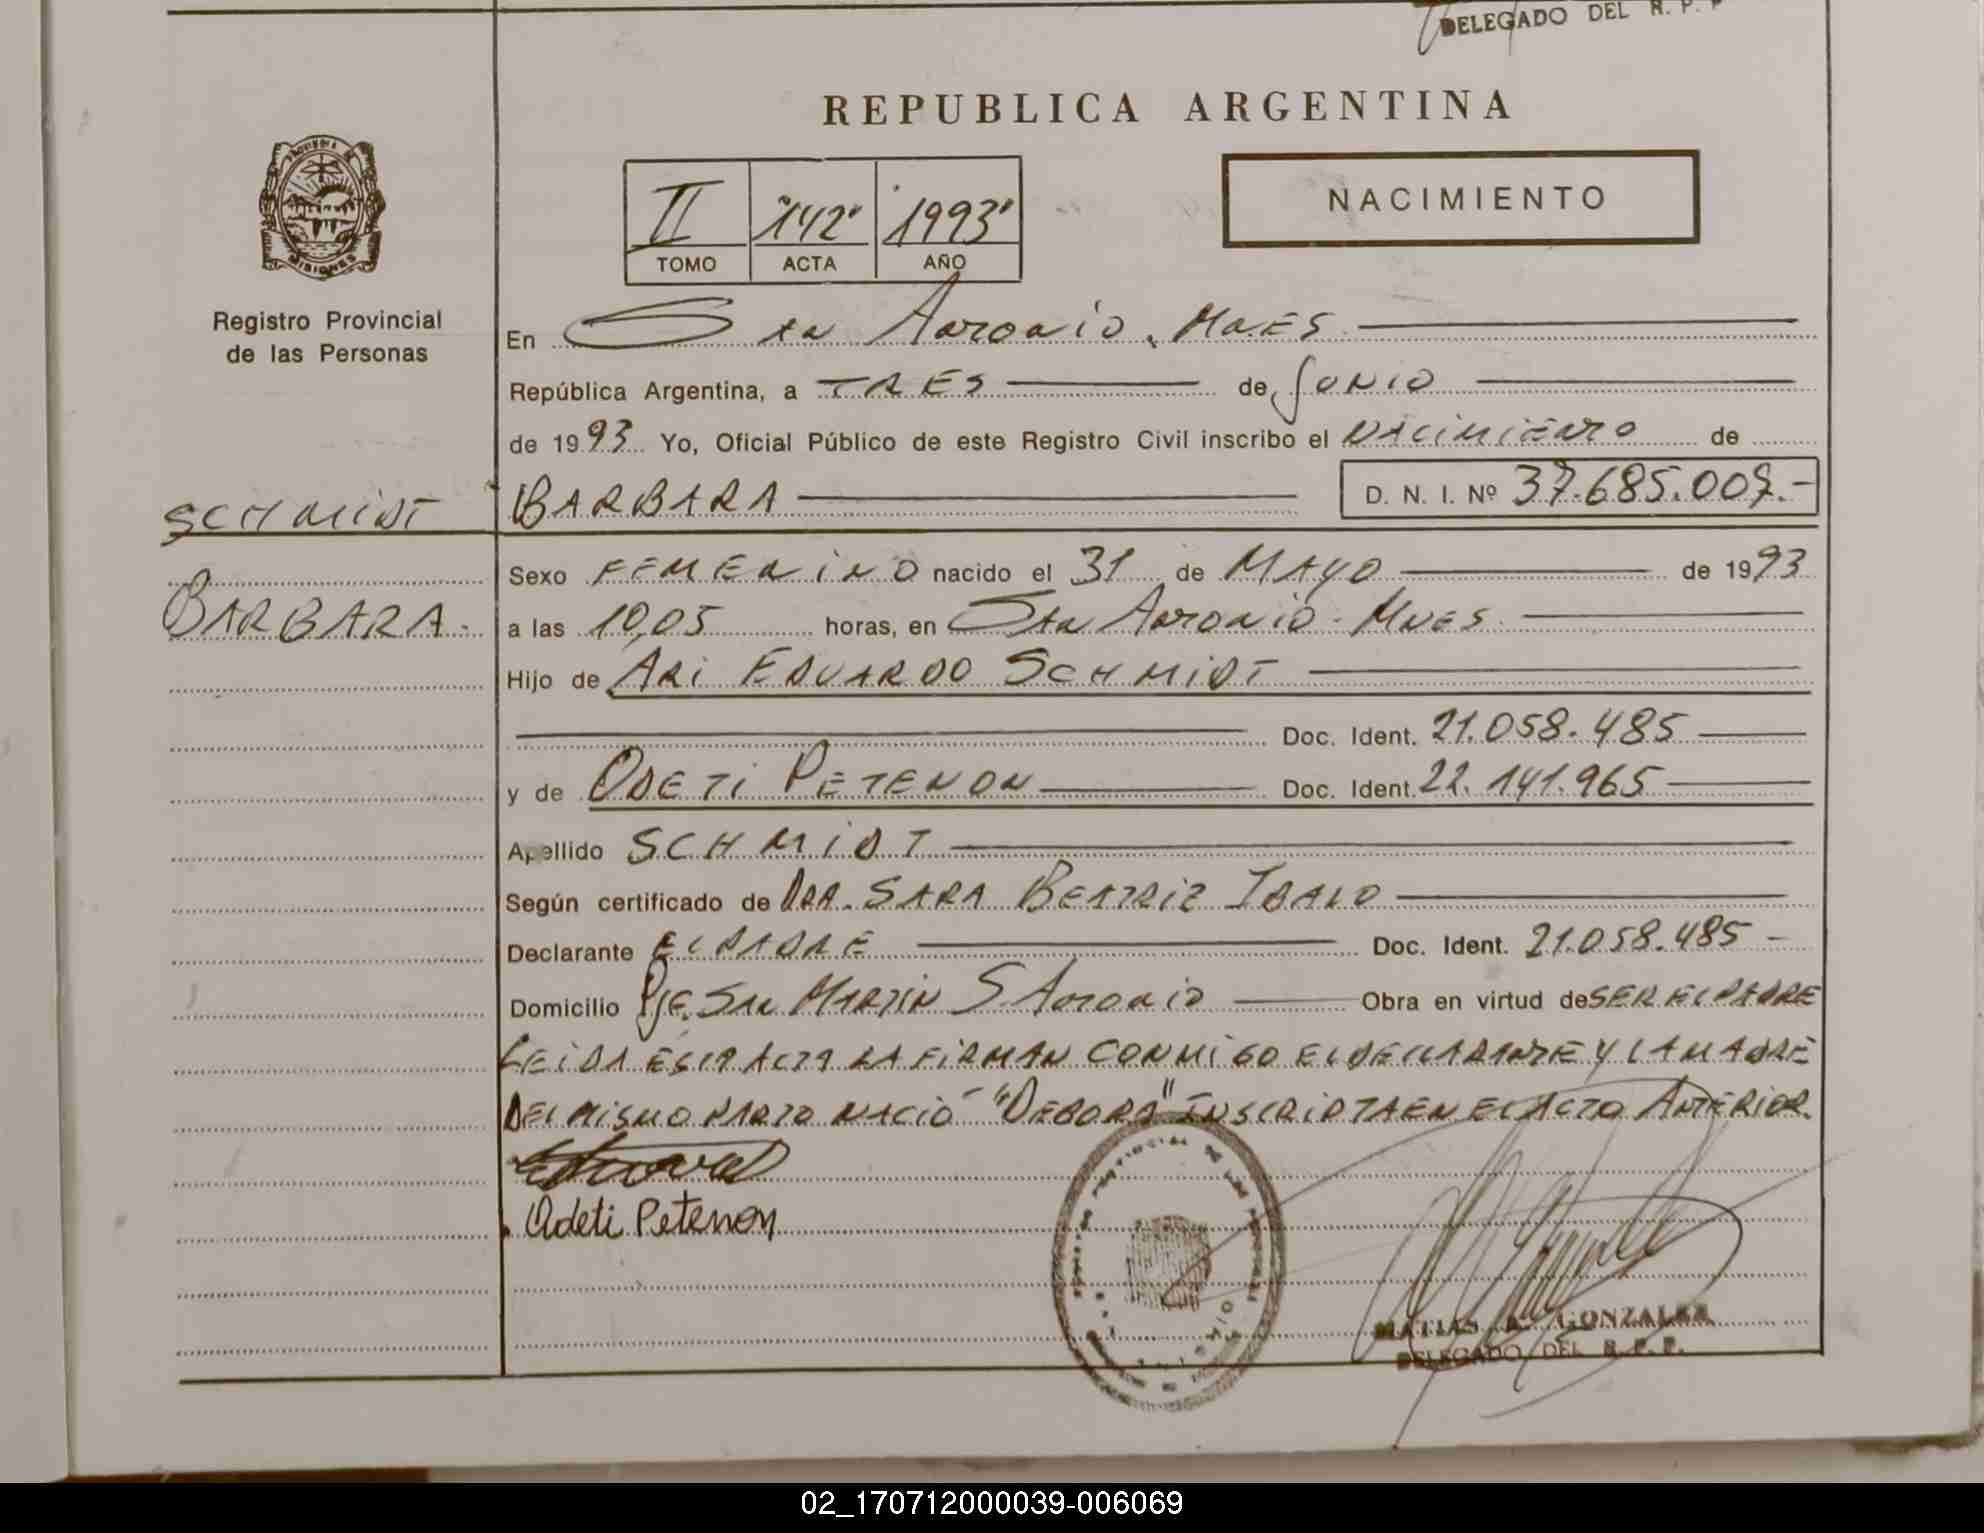 DELEGADO DEL R. P. P
REPUBLICA ARGENTINA
PROVINCIA
MISIONES
II "142" "1993"
TOMO ACTA AÑO
NACIMIENTO
Registro Provincial
de las Personas
En San Antonio, Mnes
República Argentina, a TRES de Junio
de 1993 Yo, Oficial Público de este Registro Civil inscribo el Nacimiento de
SCHMIDT BARBARA D. N. I. Nº 37.685.009.-
Sexo FEMENINO nacido el 31 de MAYO de 1993
BARBARA. a las 10,05 horas, en San Antonio - Mnes
Hijo de Ari Eduardo Schmidt
Doc. Ident. 21.058.485
y de Odeti Petenon Doc. Ident. 22.141.965
Apellido SCHMIDT
Según certificado de Dra. Sara Beatriz
Declarante El Padre Doc. Ident. 21.058.485 -
Domicilio Pje. San Martin S. Antonio Obra en virtud de SER EL PADRE
LEIDA ESTA ACTA LA FIRMAN CONMIGO EL DECLARANTE Y LA MADRE
DEL MISMO PARTO NACIÓ "DEBORA" INSCRIPTA EN EL ACTO ANTERIOR.
Odeti Petenon
MATIAS R. GONZALEZ
DELEGADO DEL R. P. P.
02_170712000039-006069